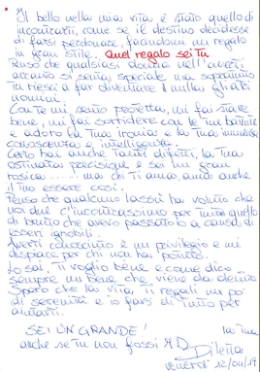 Il bello nella mia vita è stato quello di
incontrarti, come se il destino decidesse
di farsi perdonare, facendomi un regalo
in gran stile. Quel regalo sei tu
Penso che qualsiasi donna nell'averti
accanto si senta speciale ma soprattutto
tu riesci a far diventare nulla gli altri
uomini.
Con te mi sento protetta, mi fai stare
bene, mi fai sorridere con le tue battute
e adoro la tua ironia e la tua immensa
conoscenza e intelligenza.
Certo hai anche tanti difetti, la tua
ostinata precisione e sei un gran
rosica ..... ma chi ti ama, ama anche
il tuo essere così.
Penso che qualcuno lassù ha voluto che
noi due c'incontrassimo per tutto quello
di brutto che avevo passato a causa di
esseri ignobili.
Averti conosciuto è un privilegio e mi
dispiace per chi non ha potuto.
Lo sai, Ti voglio bene e come dico
sempre un bene che viene da dentro
Spero che la vita, ti regali un po'
di serenità e io farò di tutto per
aiutarti.
SEI UN GRANDE! la tua
anche se tu non fossi Diletta
venerdì 12/04/19